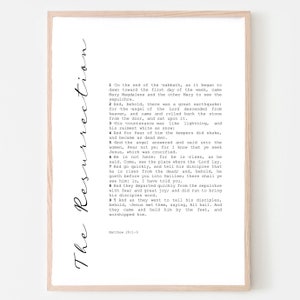 The Resurrection
1 In the end of the sabbath, as it began to
dawn toward the first day of the week, came
Mary Magdalene and the other Mary to see the
sepulchre.
2 And, behold, there was a great earthquake:
for the angel of the Lord descended from
heaven, and came and rolled back the stone
from the door, and sat upon it.
3 His countenance was like lightning, and
his raiment white as snow:
4 And for fear of him the keepers did shake,
and became as dead men.
5 And the angel answered and said unto the
women, Fear not ye: for I know that ye seek
Jesus, which was crucified.
6 He is not here: for he is risen, as he
said. Come, see the place where the Lord lay.
7 And go quickly, and tell his disciples that
he is risen from the dead; and, behold, he
goeth before you into Galilee; there shall ye
see him: lo, I have told you.
8 And they departed quickly from the sepulchre
with fear and great joy; and did run to bring
his disciples word.
9 And as they went to tell his disciples,
behold, Jesus met them, saying, All hail. And
they came and held him by the feet, and
worshipped him.
Matthew 28:1-9